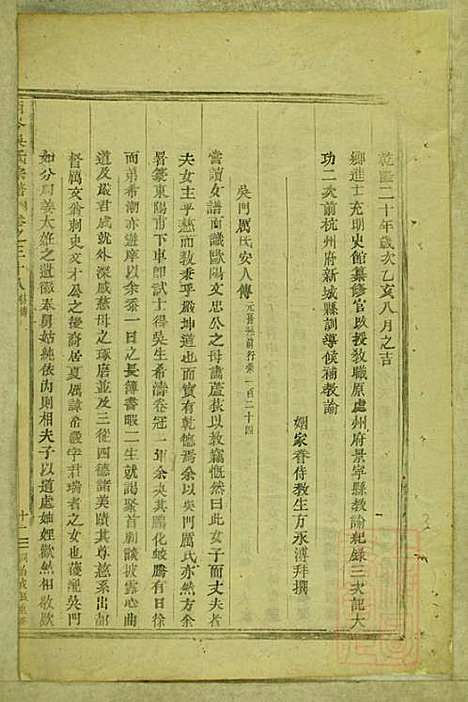 乾隆二十年歲次乙亥八月之吉
鄉進士充明史館纂修官以授教職原處州府景寧縣教諭紀錄三次記大
功二次前杭州府新城縣訓導候補教諭
姻家眷侍教生方永溥拜撰
吳門厲氏安人傳
嘗讀女譜而識歐陽文忠公之母畫蘆荻以教竊慨然曰此女子而丈夫者
夫女主乎慈而教秉乎嚴坤道也而有乾德焉余以吳門厲氏亦然方余
署篆東陽甫下車即試士得吳生希濤卷冠一軍余央其鵬化蛟騰有日徐
而弟希潮亦遊庠以余忝一日之長簿書暇二生就謁聚首朝談披露心曲
道及嚴君成就外深感慈母之琢磨並及三從四德諸美蹟其尊慈系出
督厲文翁刺史文才公之後裔居夏厲諱希 字君瑞者之女也 吳門
如分用姜大 之道 奉舅姑純依內則相夫子以道處妯娌歡然相敬歡